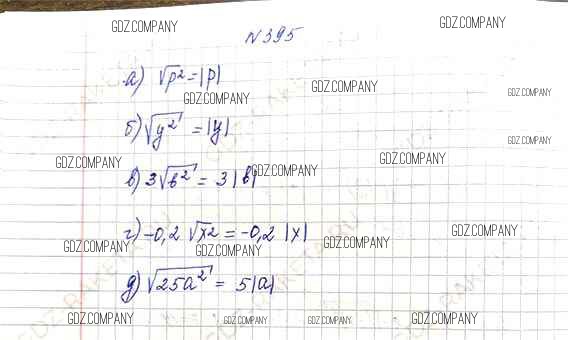 GDZ.COMPANY GDZ.COMPANY
N395
а) √p² = |p|
GDZ.COMPANY GDZ.COMPANY GDZ.COMPANY
б) √y² = |y|
GDZ.COMPANY
GDZ.COMPANY GDZ.COMPANY GDZ.COMPANY
в) 3√b² = 3|b|
г) -0,2 √x2 = -0,2 |x|
GDZ.COMPANY GDZ.COMPANY GDZ.COMPANY GDZ.COMPANY
д) √25a² = 5|a|
GDZ.COMPANY GDZ.COMPANY GDZ.COMPANY GDZ.COMPANY